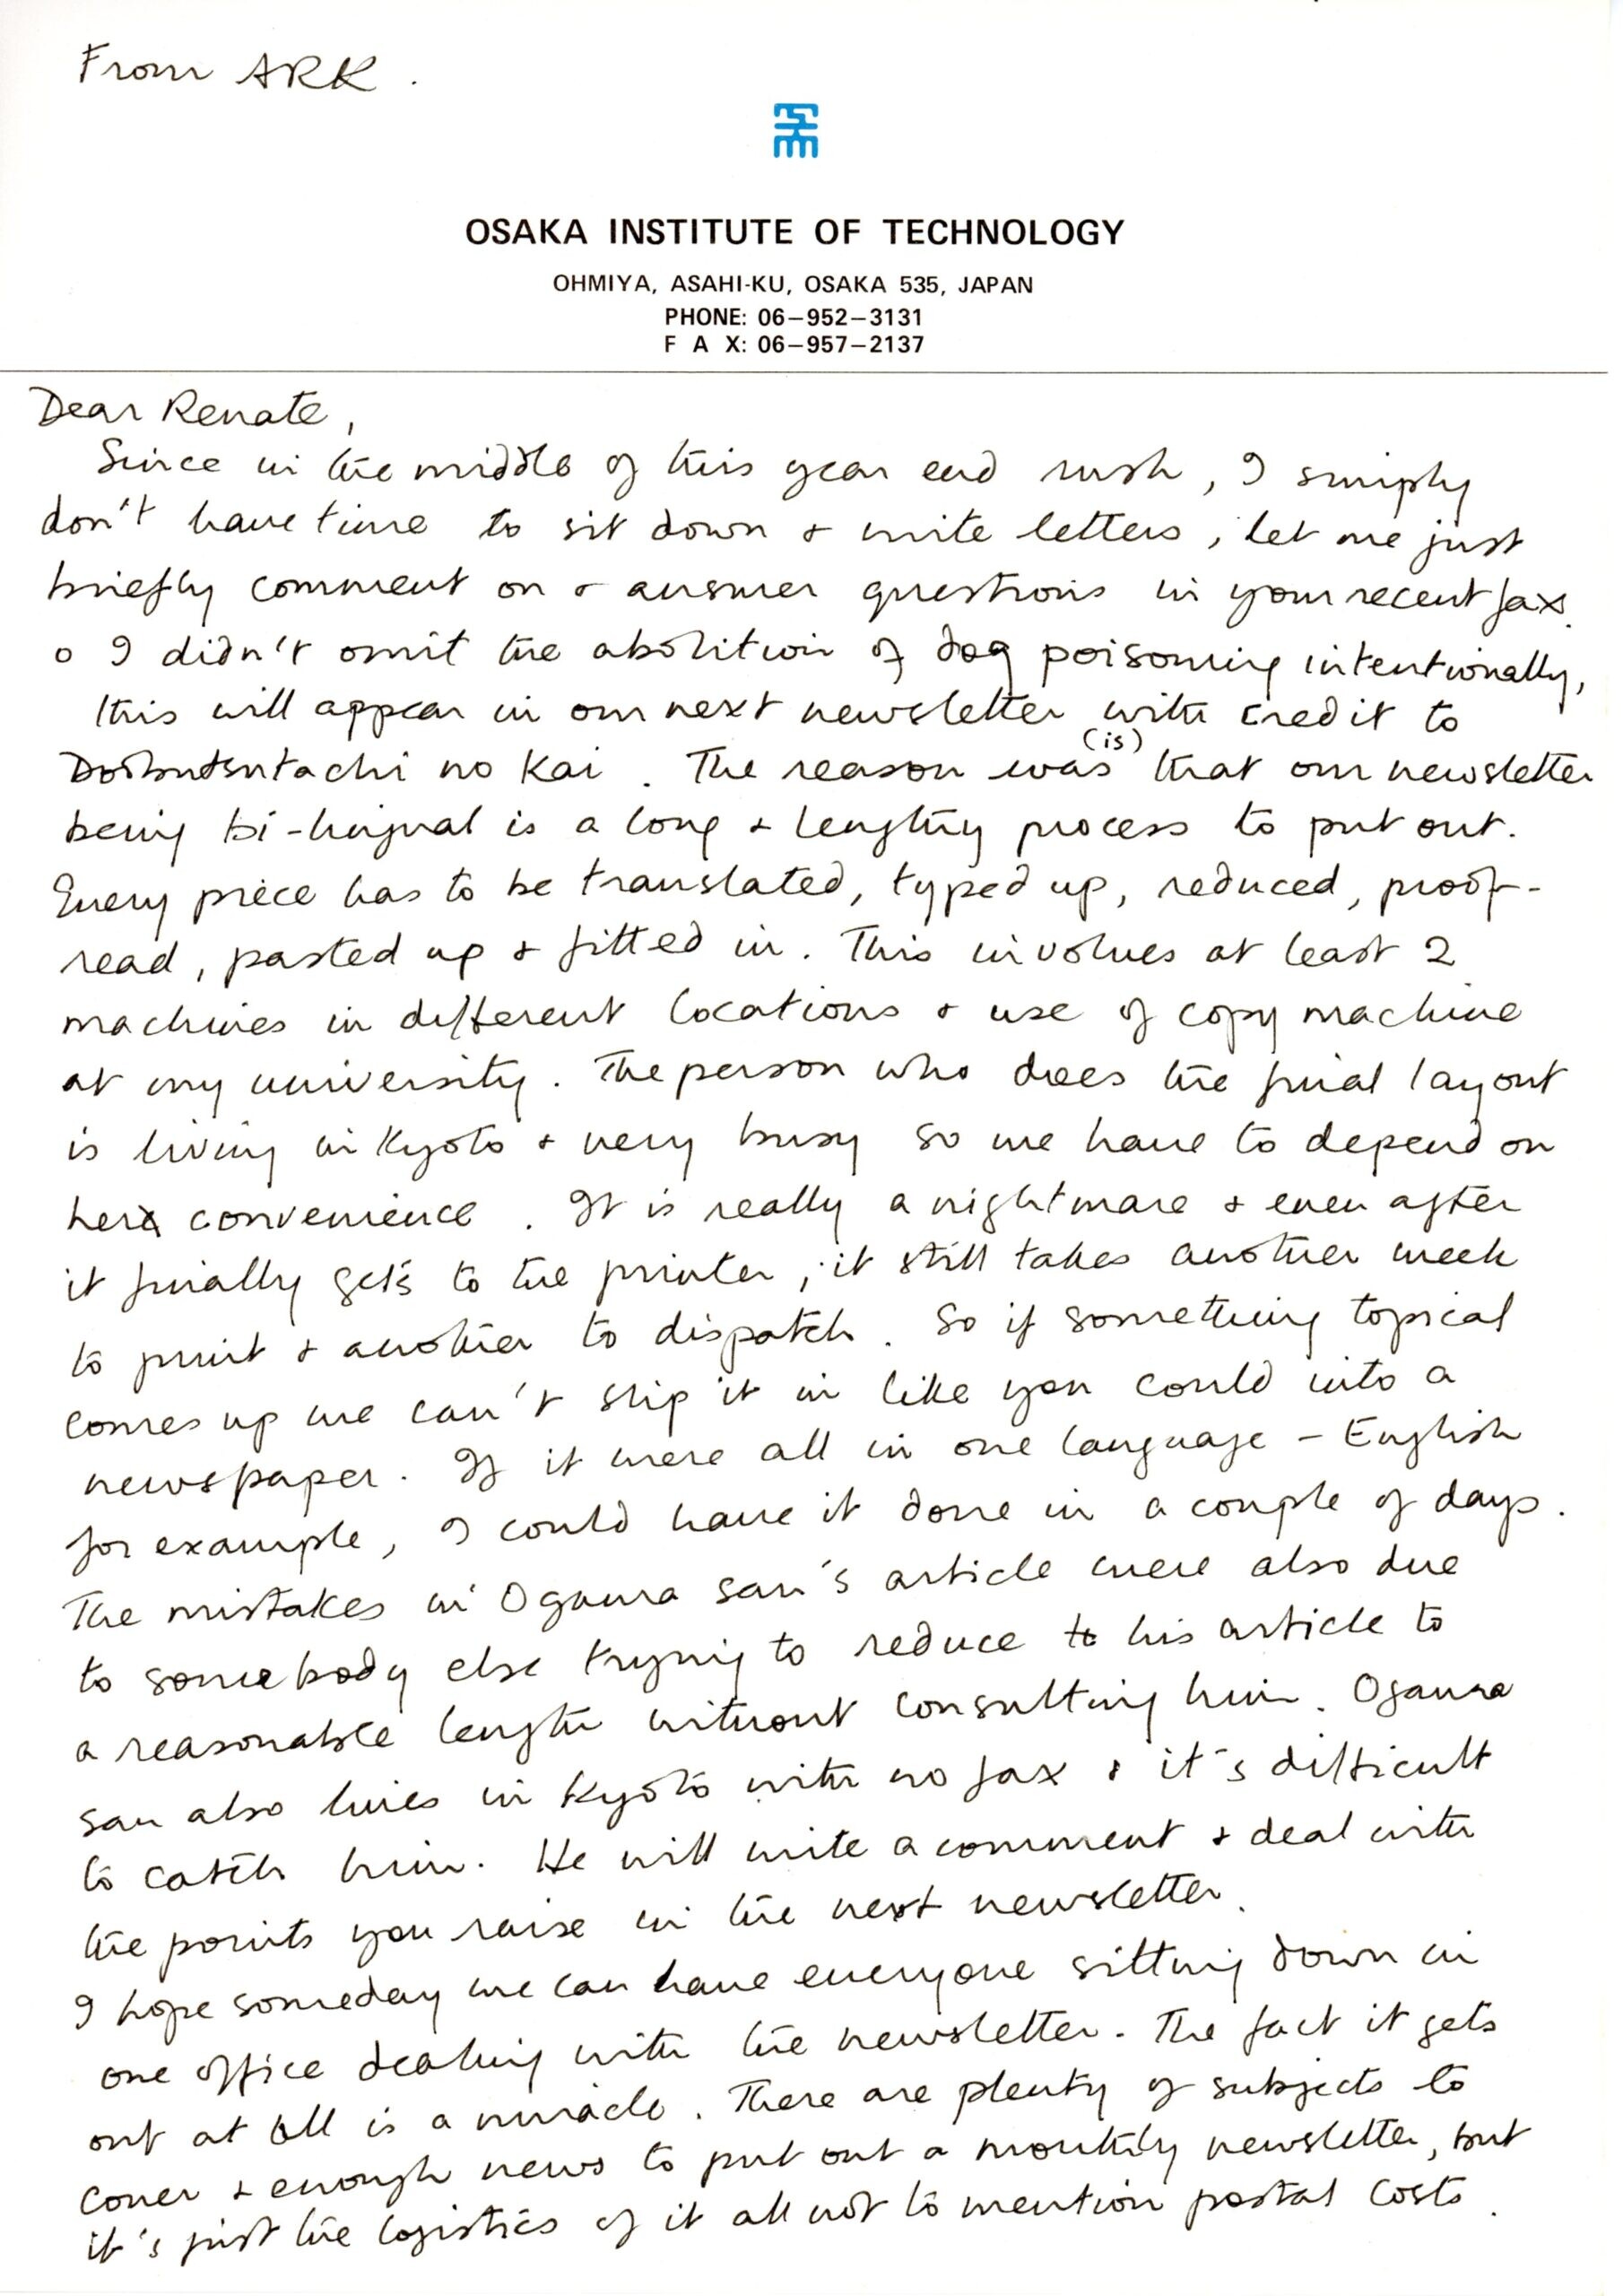 From ARK.
OSAKA INSTITUTE OF TECHNOLOGY
OHMIYA, ASAHI-KU, OSAKA 535, JAPAN
PHONE: 06–952–3131
F A X: 06–957–2137
Dear Renate,
Since in the middle of this year end rush, I simply
don't have time to sit down & write letters, let me just
briefly comment on & answer questions in your recent fax.
o I didn't omit the abolition of dog poisoning intentionally,
this will appear in our next newsletter with credit to
Doibutsutachi no Kai. The reason was (is) that our newsletter
being bi-lingual is a long & lengthy process to put out.
Every piece has to be translated, typed up, reduced, proof-
read, pasted up & fitted in. This involves at least 2
machines in different locations & use of copy machine
at my university. The person who does the final layout
is living in Kyoto & very busy so we have to depend on
her convenience. It is really a nightmare & even after
it finally gets to the printer, it still takes another week
to print & another to dispatch. So if something topical
comes up we can't slip it in like you could into a
newspaper. If it were all in one language - English
for example, I could have it done in a couple of days.
The mistakes in Ogawa san's article were also due
to somebody else trying to reduce his article to
a reasonable length without consulting him. Ogawa
san also lives in Kyoto with no fax & it's difficult
to catch him. He will write a comment & deal with
the points you raise in the next newsletter.
I hope someday we can have everyone sitting down in
one office dealing with the newsletter. The fact it gets
out at all is a miracle. There are plenty of subjects to
cover & enough news to put out a monthly newsletter, but
it's just the logistics of it all not to mention postal costs.